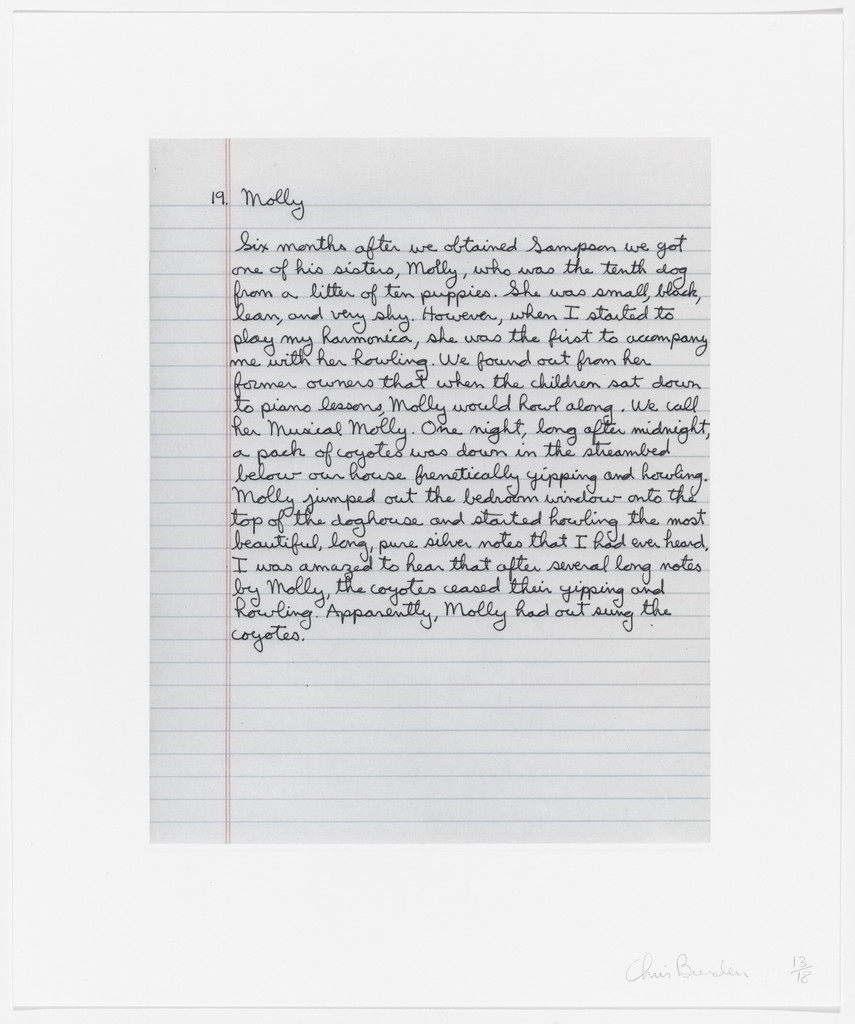 19. Molly
Six months after we obtained Sampson we got
one of his sisters, Molly, who was the tenth dog
from a litter of ten puppies. She was small, black,
lean, and very shy. However, when I started to
play my harmonica, she was the first to accompany
me with her howling. We found out from her
former owners that when the children sat down
to piano lessons, Molly would howl along. We call
her Musical Molly. One night, long after midnight,
a pack of coyotes was down in the streambed
below our house frenetically yipping and howling.
Molly jumped out the bedroom window onto the
top of the doghouse and started howling the most
beautiful, long, pure silver notes that I had ever heard.
I was amazed to hear that after several long notes
by Molly, the coyotes ceased their yipping and
howling. Apparently, Molly had out sung the
coyotes.
Chris Burden 13/18